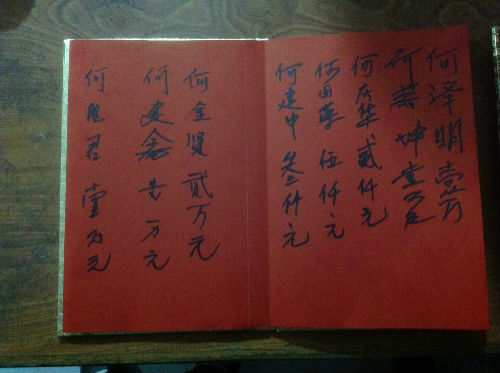 何泽明 壹万
何 坤 壹万元
何 华 贰仟元
何国 伍仟元
何建中 叁仟元
何金贤 贰万元
何建 吉 一万元
何 君 壹万元